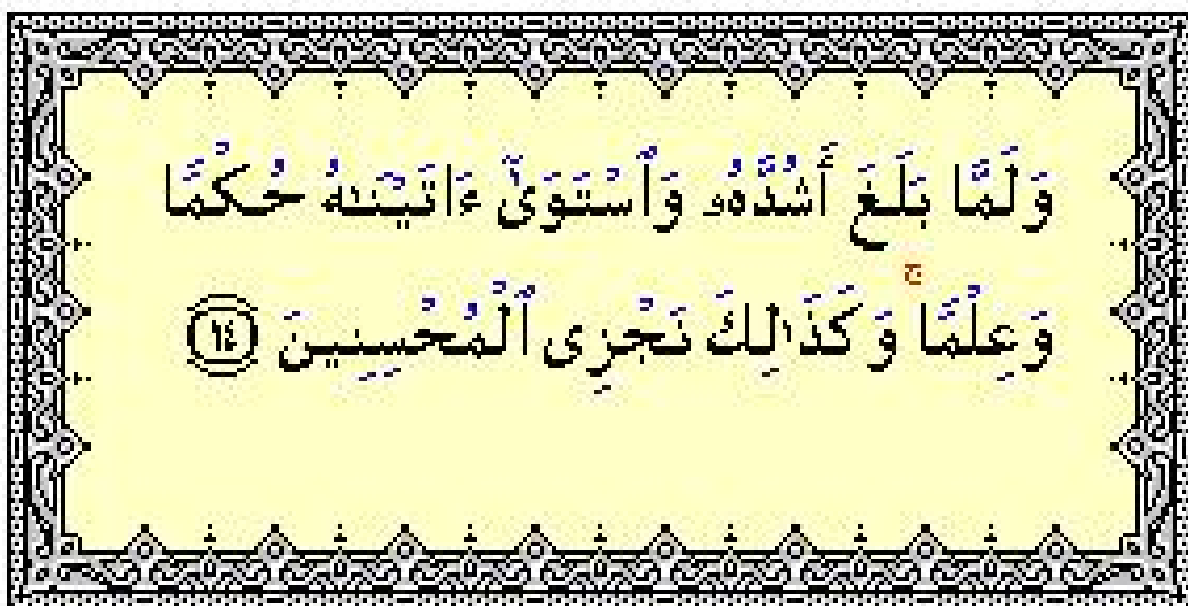 وَلَمَّا بَلَغَ أَشُدَّهُۥ وَٱسْتَوَىٰٓ ءَاتَيْنَٰهُ حُكْمًا
وَعِلْمًا ۚ وَكَذَٰلِكَ نَجْزِى ٱلْمُحْسِنِينَ ١٤